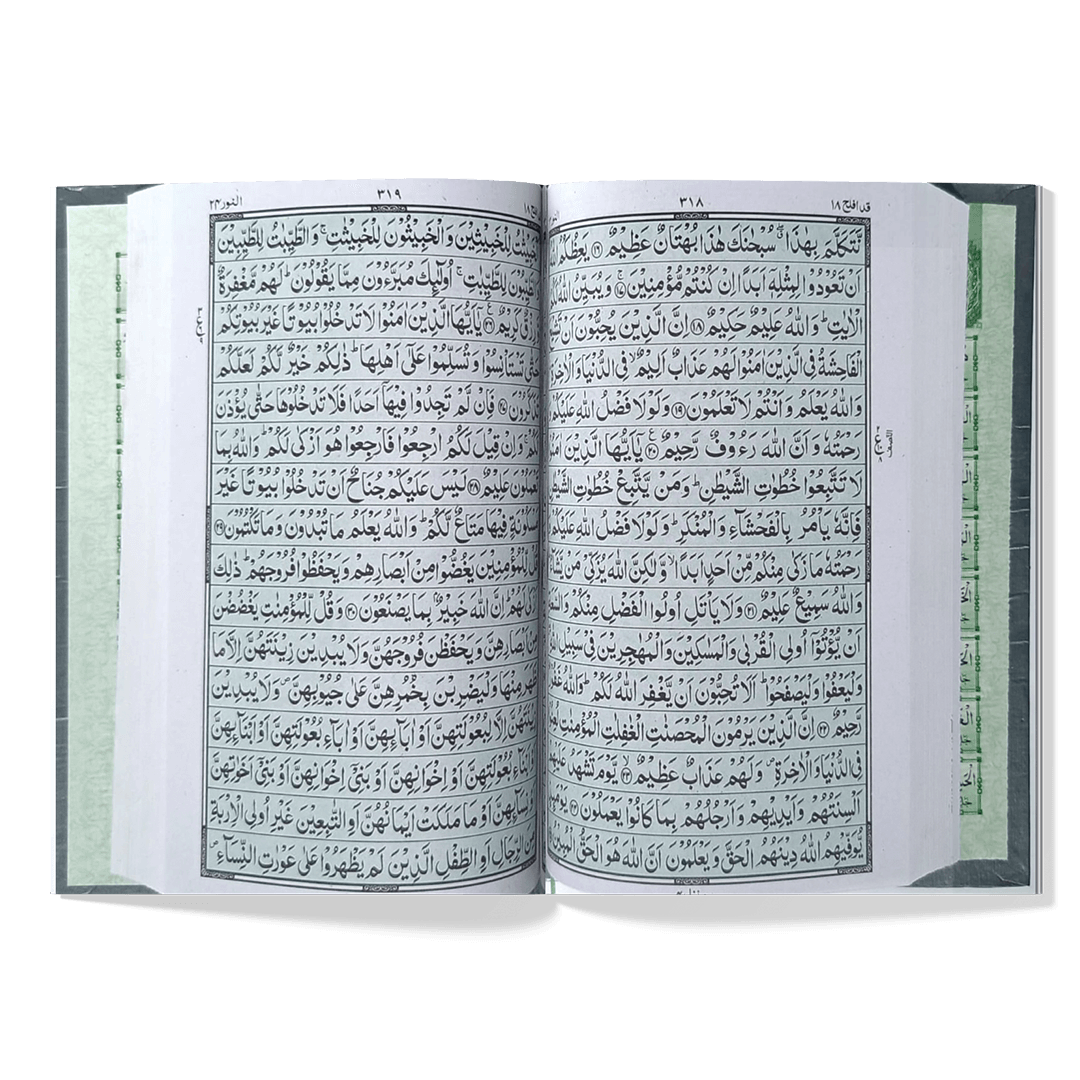 قد افلح ۱۸
۳۱۸
نَّتَكَلَّمَ بِهٰذَا ۖ سُبْحٰنَكَ هٰذَا بُهْتَانٌ عَظِيْمٌ ۱۶ يَعِظُكُمُ
اَنْ تَعُوْدُوْا لِمِثْلِهٖٓ اَبَدًا اِنْ كُنْتُمْ مُّؤْمِنِيْنَ ۱۷ وَيُبَيِّنُ اللّٰهُ
الْاٰيٰتِ ؕ وَاللّٰهُ عَلِيْمٌ حَكِيْمٌ ۱۸ اِنَّ الَّذِيْنَ يُحِبُّوْنَ اَنْ
الْفَاحِشَةُ فِي الَّذِيْنَ اٰمَنُوْا لَهُمْ عَذَابٌ اَلِيْمٌ ۙ فِي الدُّنْيَا وَالْاٰخِرَةِ
وَاللّٰهُ يَعْلَمُ وَاَنْتُمْ لَا تَعْلَمُوْنَ ۱۹ وَلَوْلَا فَضْلُ اللّٰهِ عَلَيْكُمْ
رَحْمَتُهٗ وَاَنَّ اللّٰهَ رَءُوْفٌ رَّحِيْمٌ ۲۰ يٰٓاَيُّهَا الَّذِيْنَ
لَا تَتَّبِعُوْا خُطُوٰتِ الشَّيْطٰنِ ؕ وَمَنْ يَّتَّبِعْ خُطُوٰتِ الشَّيْطٰنِ
فَاِنَّهٗ يَاْمُرُ بِالْفَحْشَآءِ وَالْمُنْكَرِ ؕ وَلَوْلَا فَضْلُ اللّٰهِ عَلَيْكُمْ
رَحْمَتُهٗ مَا زَكٰى مِنْكُمْ مِّنْ اَحَدٍ اَبَدًا ۙ وَّلٰكِنَّ اللّٰهَ يُزَكِّيْ مَنْ يَّشَآءُ
وَاللّٰهُ سَمِيْعٌ عَلِيْمٌ ۲۱ وَلَا يَاْتَلِ اُولُوا الْفَضْلِ مِنْكُمْ
اَنْ يُّؤْتُوْٓا اُولِي الْقُرْبٰى وَالْمَسٰكِيْنَ وَالْمُهٰجِرِيْنَ فِيْ سَبِيْلِ
وَلْيَعْفُوْا وَلْيَصْفَحُوْا ؕ اَلَا تُحِبُّوْنَ اَنْ يَّغْفِرَ اللّٰهُ لَكُمْ ؕ وَاللّٰهُ
رَّحِيْمٌ ۲۲ اِنَّ الَّذِيْنَ يَرْمُوْنَ الْمُحْصَنٰتِ الْغٰفِلٰتِ الْمُؤْمِنٰتِ
فِي الدُّنْيَا وَالْاٰخِرَةِ ۪ وَلَهُمْ عَذَابٌ عَظِيْمٌ ۙ ۲۳ يَّوْمَ تَشْهَدُ عَلَيْهِمْ
اَلْسِنَتُهُمْ وَاَيْدِيْهِمْ وَاَرْجُلُهُمْ بِمَا كَانُوْا يَعْمَلُوْنَ ۲۴
يُّوَفِّيْهِمُ اللّٰهُ دِيْنَهُمُ الْحَقَّ وَيَعْلَمُوْنَ اَنَّ اللّٰهَ هُوَ الْحَقُّ الْمُبِيْنُ
النصف
۳۱۹
النور ۲۴
لِلْخَبِيْثِيْنَ وَالْخَبِيْثُوْنَ لِلْخَبِيْثٰتِ ۚ وَالطَّيِّبٰتُ لِلطَّيِّبِيْنَ
لِلطَّيِّبٰتِ ۚ اُولٰٓئِكَ مُبَرَّءُوْنَ مِمَّا يَقُوْلُوْنَ ؕ لَهُمْ مَّغْفِرَةٌ
كَرِيْمٌ ۲۶ يٰٓاَيُّهَا الَّذِيْنَ اٰمَنُوْا لَا تَدْخُلُوْا بُيُوْتًا غَيْرَ بُيُوْتِكُمْ
حَتّٰى تَسْتَاْنِسُوْا وَتُسَلِّمُوْا عَلٰٓى اَهْلِهَا ؕ ذٰلِكُمْ خَيْرٌ لَّكُمْ لَعَلَّكُمْ
۲۷ فَاِنْ لَّمْ تَجِدُوْا فِيْهَآ اَحَدًا فَلَا تَدْخُلُوْهَا حَتّٰى يُؤْذَنَ
وَاِنْ قِيْلَ لَكُمُ ارْجِعُوْا فَارْجِعُوْا هُوَ اَزْكٰى لَكُمْ ؕ وَاللّٰهُ بِمَا
تَعْمَلُوْنَ عَلِيْمٌ ۲۸ لَيْسَ عَلَيْكُمْ جُنَاحٌ اَنْ تَدْخُلُوْا بُيُوْتًا غَيْرَ
فِيْهَا مَتَاعٌ لَّكُمْ ؕ وَاللّٰهُ يَعْلَمُ مَا تُبْدُوْنَ وَمَا تَكْتُمُوْنَ ۲۹
لِّلْمُؤْمِنِيْنَ يَغُضُّوْا مِنْ اَبْصَارِهِمْ وَيَحْفَظُوْا فُرُوْجَهُمْ ؕ ذٰلِكَ
اَزْكٰى لَهُمْ ؕ اِنَّ اللّٰهَ خَبِيْرٌۢ بِمَا يَصْنَعُوْنَ ۳۰ وَقُلْ لِّلْمُؤْمِنٰتِ يَغْضُضْنَ
مِنْ اَبْصَارِهِنَّ وَيَحْفَظْنَ فُرُوْجَهُنَّ وَلَا يُبْدِيْنَ زِيْنَتَهُنَّ اِلَّا مَا
ظَهَرَ مِنْهَا وَلْيَضْرِبْنَ بِخُمُرِهِنَّ عَلٰى جُيُوْبِهِنَّ ۪ وَلَا يُبْدِيْنَ
زِيْنَتَهُنَّ اِلَّا لِبُعُوْلَتِهِنَّ اَوْ اٰبَآئِهِنَّ اَوْ اٰبَآءِ بُعُوْلَتِهِنَّ اَوْ اَبْنَآئِهِنَّ
اَبْنَآءِ بُعُوْلَتِهِنَّ اَوْ اِخْوَانِهِنَّ اَوْ بَنِيْٓ اِخْوَانِهِنَّ اَوْ بَنِيْٓ اَخَوٰتِهِنَّ
نِسَآئِهِنَّ اَوْ مَا مَلَكَتْ اَيْمَانُهُنَّ اَوِ التّٰبِعِيْنَ غَيْرِ اُولِي الْاِرْبَةِ
مِنَ الرِّجَالِ اَوِ الطِّفْلِ الَّذِيْنَ لَمْ يَظْهَرُوْا عَلٰى عَوْرٰتِ النِّسَآءِ ۪